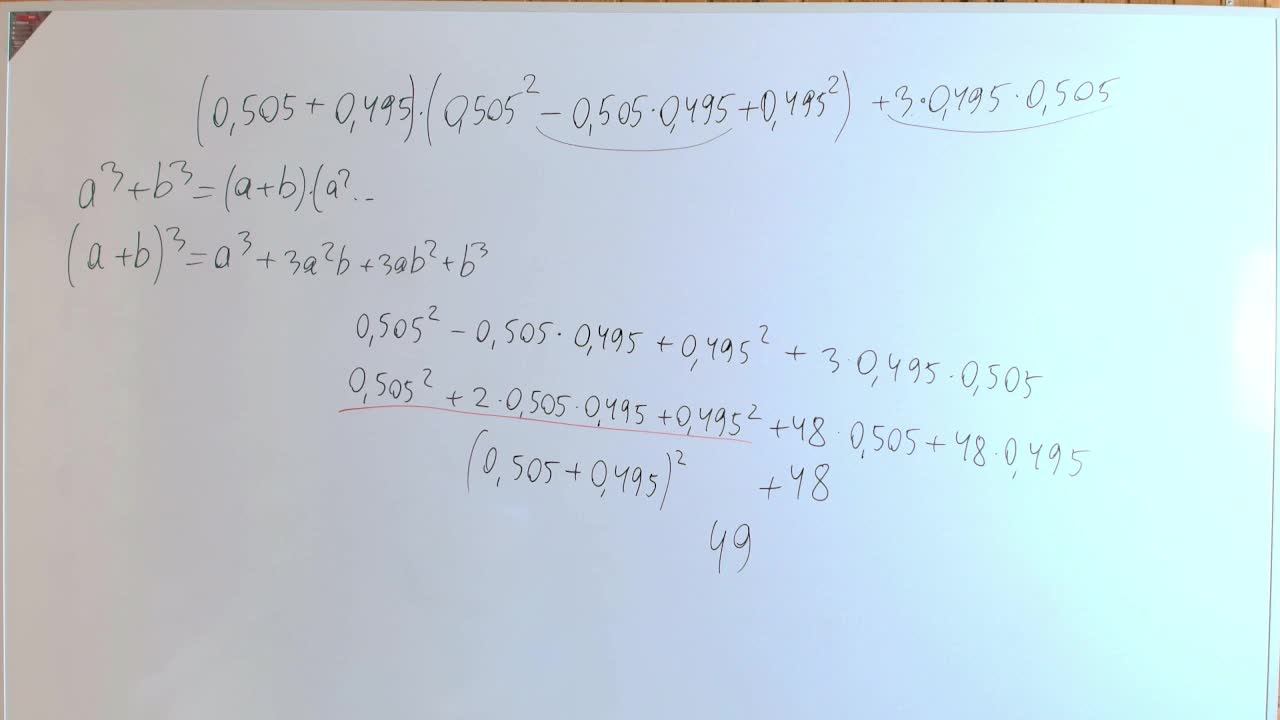 (0,505 + 0,495)·(0,505² − 0,505·0,495 + 0,495²) + 3·0,495·0,505
a³+b³=(a+b)·(a²..
(a+b)³=a³+3a²b+3ab²+b³
0,505² − 0,505·0,495 + 0,495² + 3·0,495·0,505
0,505² + 2·0,505·0,495 + 0,495² + 48·0,505 + 48·0,495
(0,505 + 0,495)² + 48
49